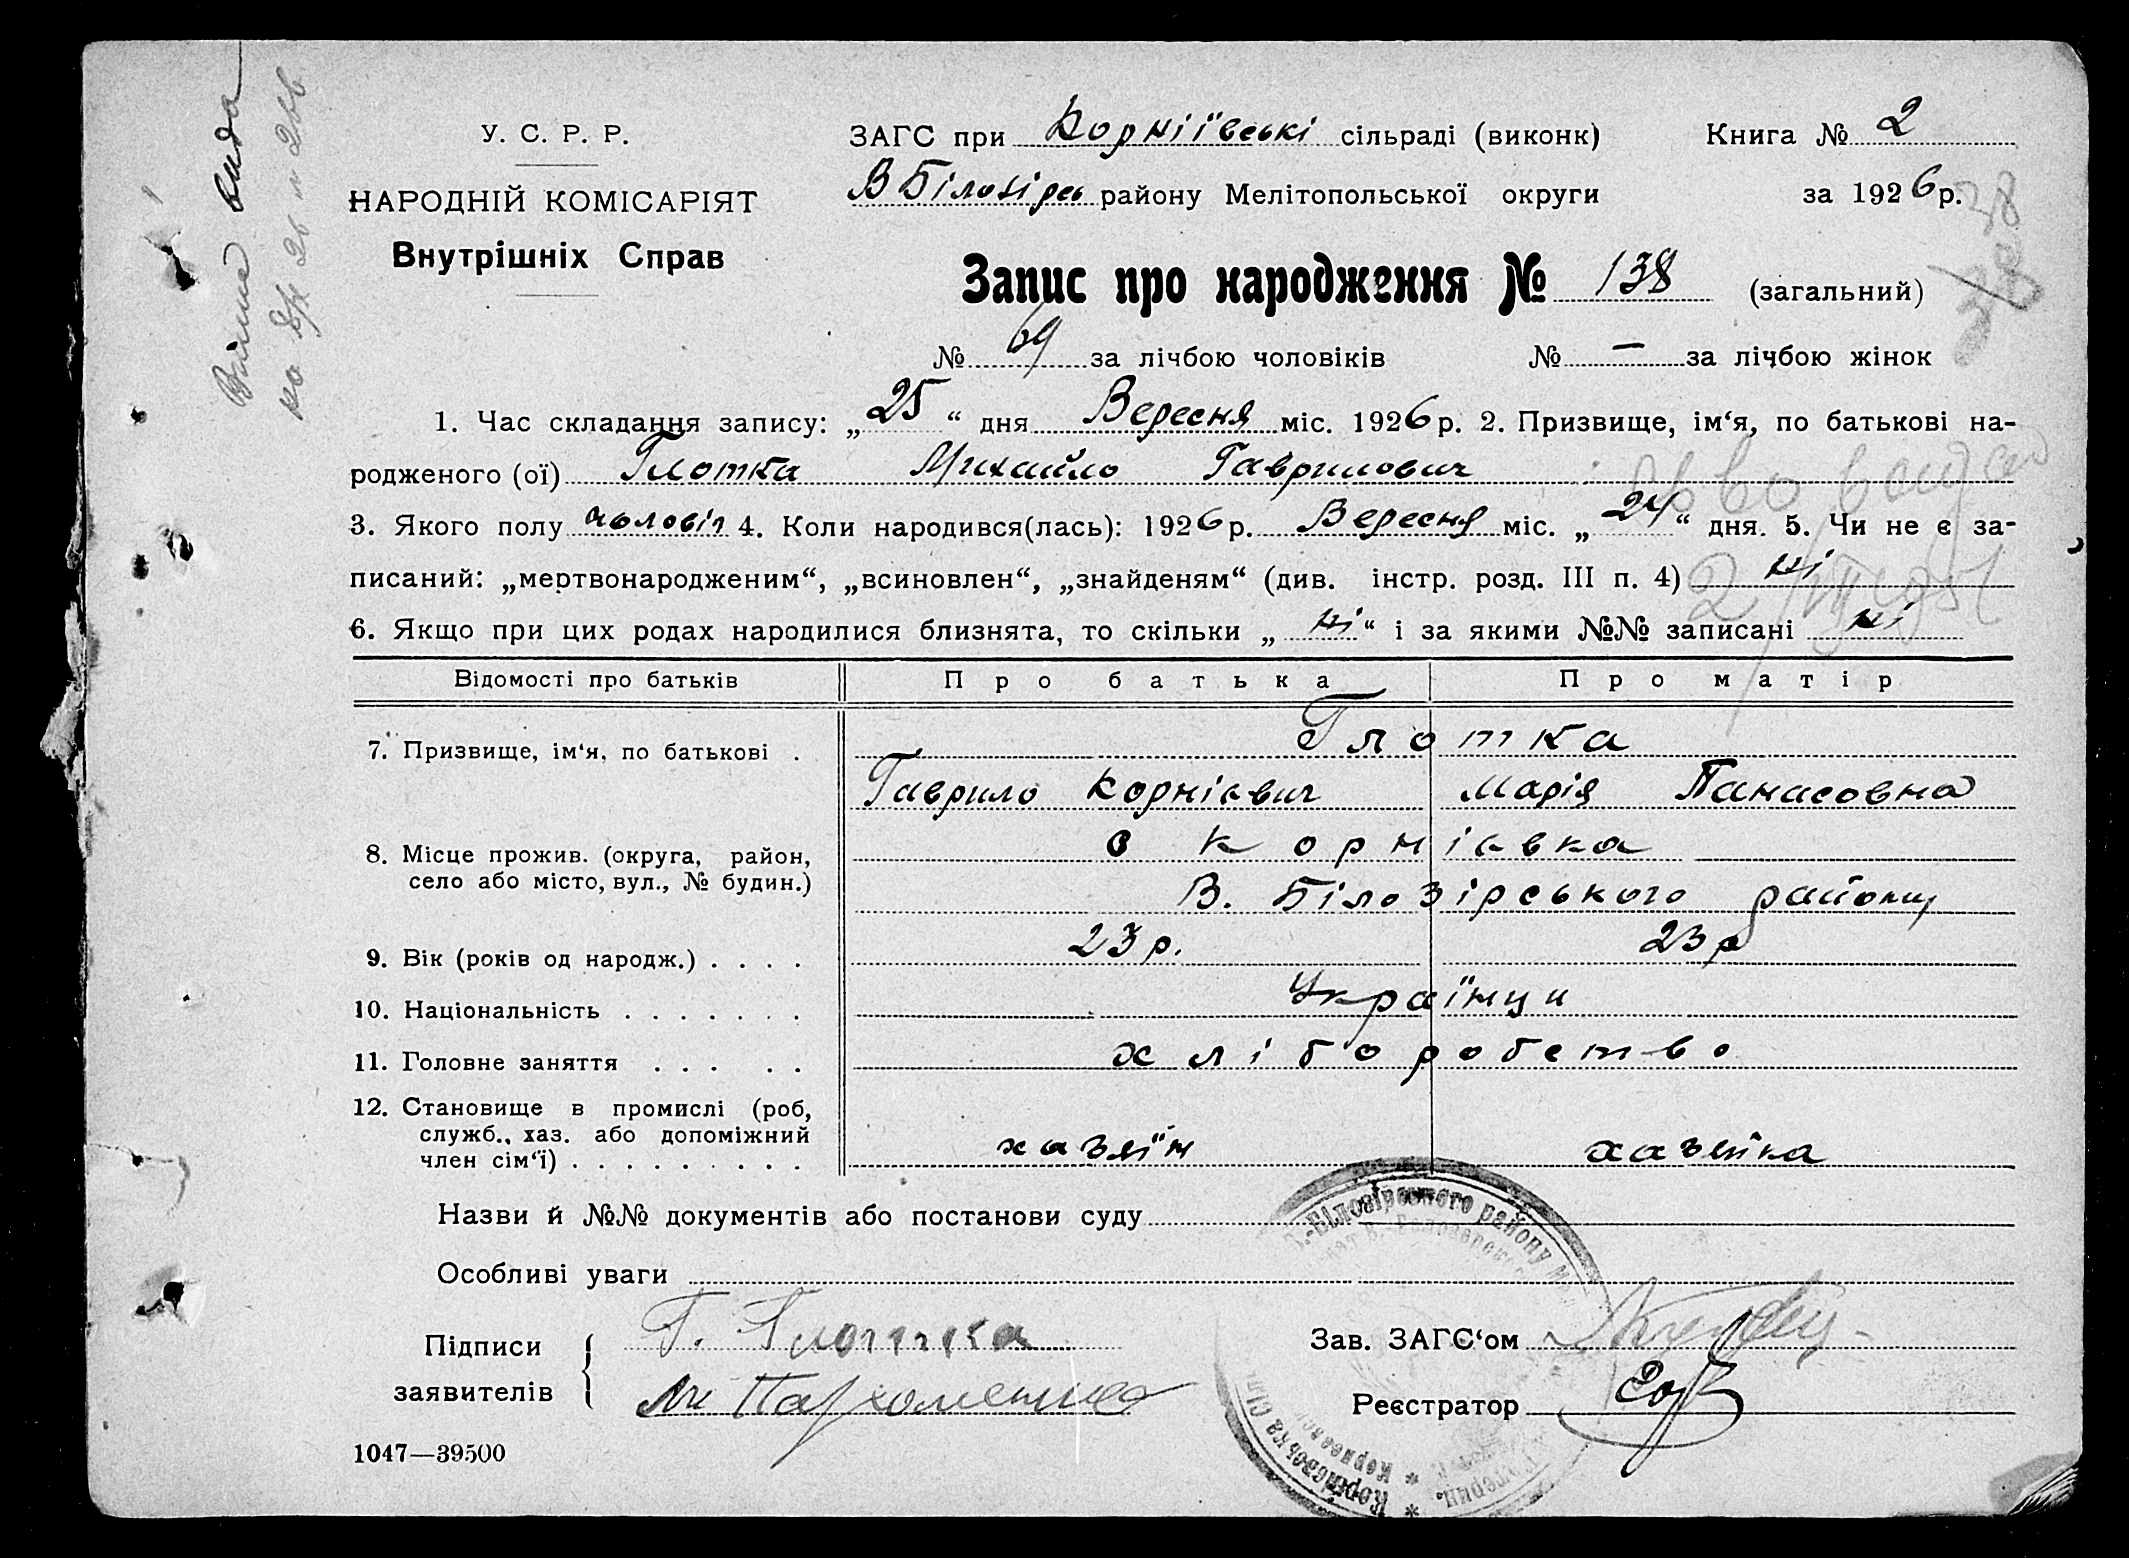 У. С. Р. Р.
НАРОДНІЙ КОМІСАРІЯТ
Внутрішніх Справ
ЗАГС при Корніївські сільраді (виконк)
Книга № 2
В Білозірсь району Мелітопольської округи
за 1926 р.
38
38
Запис про народження № 138 (загальний)
№ 69 за лічбою чоловіків № — за лічбою жінок
1. Час складання запису: „25“ дня Вересня міс. 1926 р. 2. Призвище, ім‘я, по батькові на-
родженого (ої) Глотка Михайло Гаврилович
3. Якого полу чоловіч 4. Коли народився(лась): 1926 р. Вересня міс. „24“ дня. 5. Чи не є за-
писаний: „мертвонародженим“, „всиновлен“, „знайденям“ (див. інстр. розд. III п. 4) ні
6. Якщо при цих родах народилися близнята, то скільки „ні“ і за якими №№ записані ні
Відомості про батьків Про батька Про матір
7. Призвище, ім‘я, по батькові . Глотка
Гаврило Корнієвич Марія Панасовна
8. Місце прожив. (округа, район,
село або місто, вул., № будин.)
с Корнієвка
В. Білозірського району
9. Вік (років од народж.) . . . . 23 р. 23 р
10. Національність . . . . . . . Українци
11. Головне заняття . . . . . хліборобство
12. Становище в промислі (роб,
служб., хаз. або допоміжний
член сім‘ї) . . . . . . . . . хазяїн хазяїка
Назви й №№ документів або постанови суду
Особливі уваги
Підписи
заявителів
Г. Глотка
Ми Пархоменко
Зав. ЗАГС‘ом
Реєстратор
1047—39500
В.-Білозірського району
Корнієвська сіл.